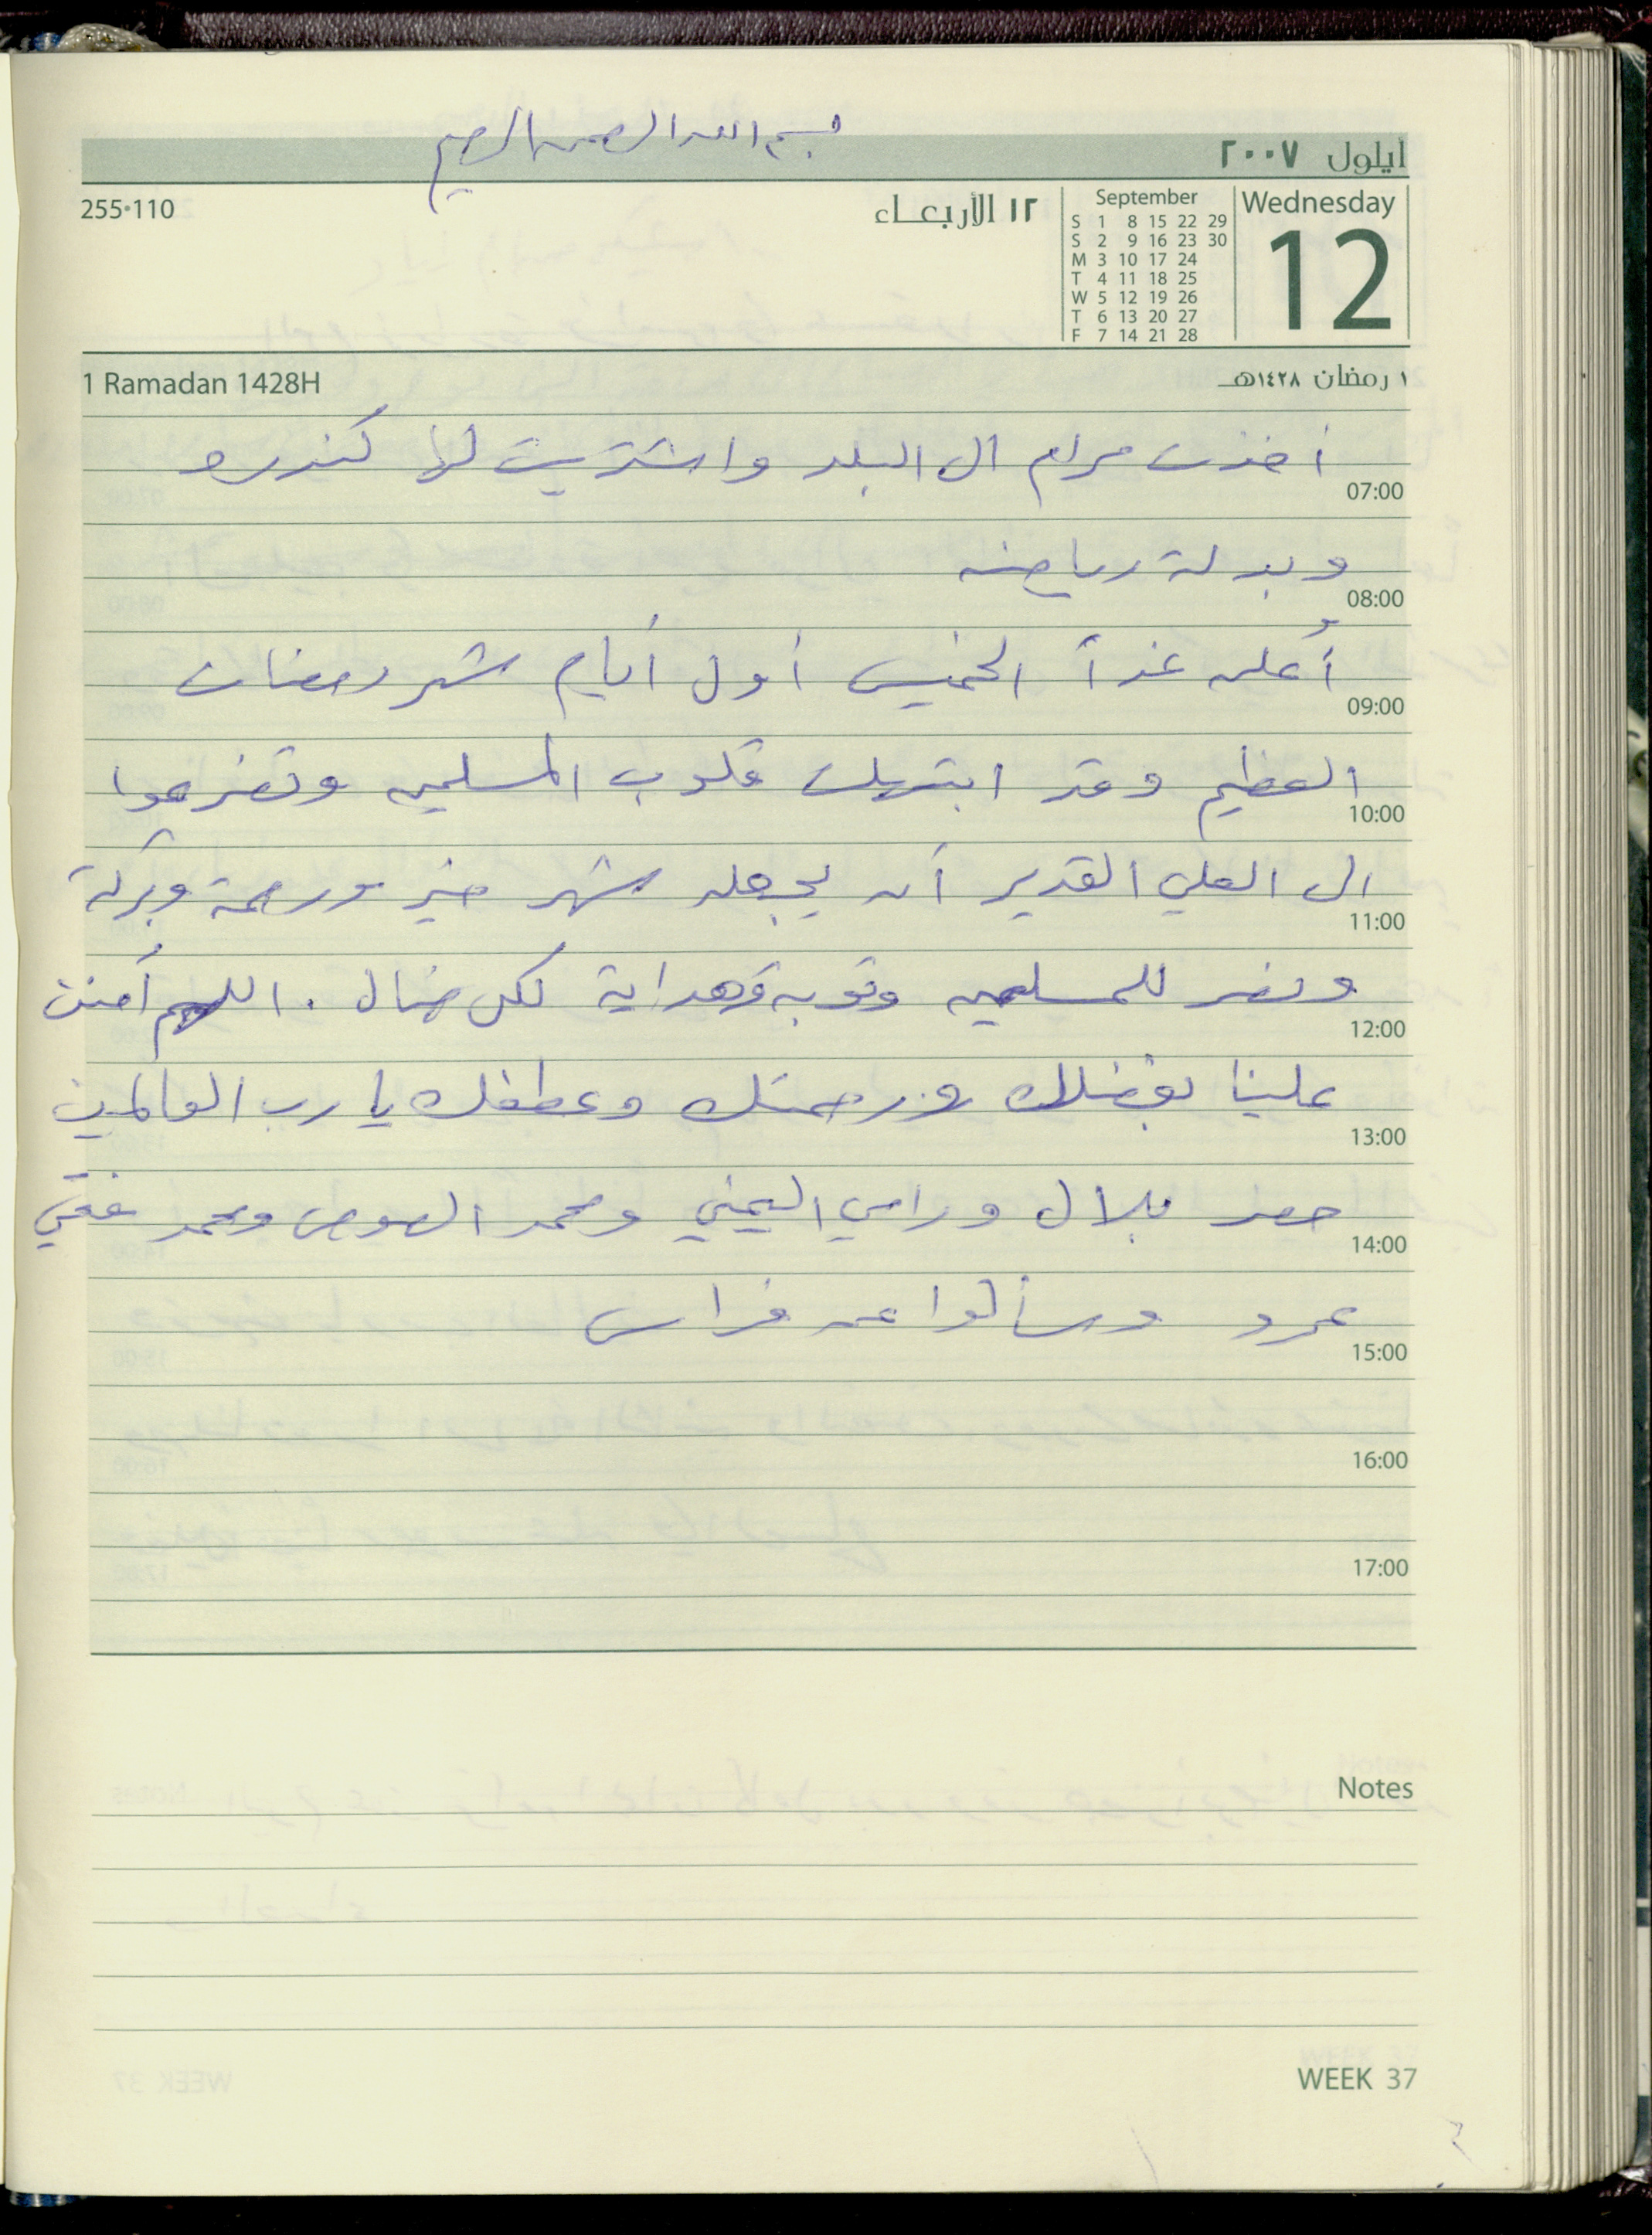 بسم الله الرحمن الرحيم
أيلول ٢٠٠٧
255•110
١٢ الأربعاء
September
S 1 8 15 22 29
S 2 9 16 23 30
M 3 10 17 24
T 4 11 18 25
W 5 12 19 26
T 6 13 20 27
F 7 14 21 28
Wednesday
12
1 Ramadan 1428H
١ رمضان ١٤٢٨هـ
أخذت مرام الى البلد واشتريت لها كندره
07:00
وبدلة رياضه
08:00
أُعلن غداً الخميس أول أيام شهر رمضان
09:00
العظيم وقد ابتهلت قلوب المسلمين وتضرعوا
10:00
الى العلي القدير أن يجعله شهر خير ورحمة وبركة
11:00
ونصر للمسلمين وتوبة وهداية لكل ضال . اللهم أمنن
12:00
علينا بفضلك ورحمتك وعطفك يا رب العالمين
13:00
حضر بلال ورامي اليمني ومحمد الصوص ومحمد
14:00
عمرو وسألوا عن فراس
15:00
16:00
17:00
Notes
WEEK 37